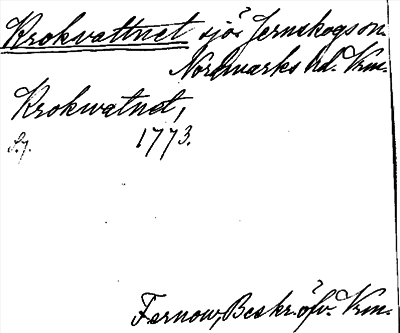 Krokvattnet sjö i Jernskogs sn.
Nordmarks hd. Vrm.
Krokwatnet,
S. 7. 1773.
Fernow, Beskr. öfv. Vrm.